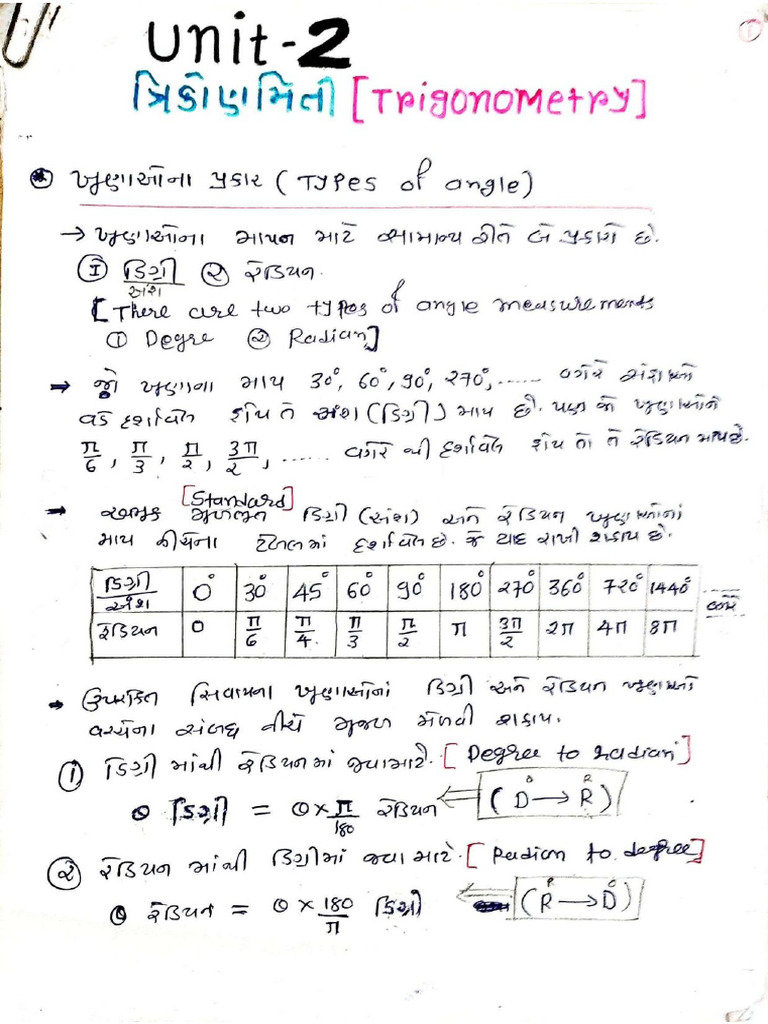 Unit-2
ત્રિકોણમિતી [Trigonometry]
ખૂણાઓના પ્રકાર (Types of angle)
→ ખૂણાઓના માપન માટે સામાન્ય રીતે બે પ્રકારો છે.
① ડિગ્રી ② રેડિયન.
અંશ
[There are two types of angle measurements
① Degre ② Radian]
→ જો ખૂણાના માપ 30°, 60°, 90°, 270°, ...... વગેરે અંશઓ
વડે દર્શાવેલ હોય તે અંશ (ડિગ્રી) માપ છે. પણ જો ખૂણાઓને
π/6, π/3, π/2, 3π/2, ...... વગેરે થી દર્શાવેલ હોય તો તે રેડિયન માપ છે.
[Standard]
→ અમુક મૂળભૂત ડિગ્રી (અંશ) અને રેડિયન ખૂણાઓનાં
માપ નીચેના ટેબલમાં દર્શાવેલ છે. જે યાદ રાખી શકાય છે.
ડિગ્રી/અંશ 0° 30° 45° 60° 90° 180° 270° 360° 720° 1440° ....
રેડિયન 0 π/6 π/4 π/3 π/2 π 3π/2 2π 4π 8π
→ ઉપરોક્ત સિવાયના ખૂણાઓનાં ડિગ્રી અને રેડિયન ખૂણાઓ
વચ્ચેના સંબંધ નીચે મુજબ મેળવી શકાય.
① ડિગ્રી માંથી રેડિયનમાં જવા માટે. [Degree to radian]
θ ડિગ્રી = θ × π/180 રેડિયન ⇐ (D → R)
② રેડિયન માંથી ડિગ્રીમાં જવા માટે. [Radian to degree]
θ રેડિયન = θ × 180/π ડિગ્રી ⇐ (R → D)